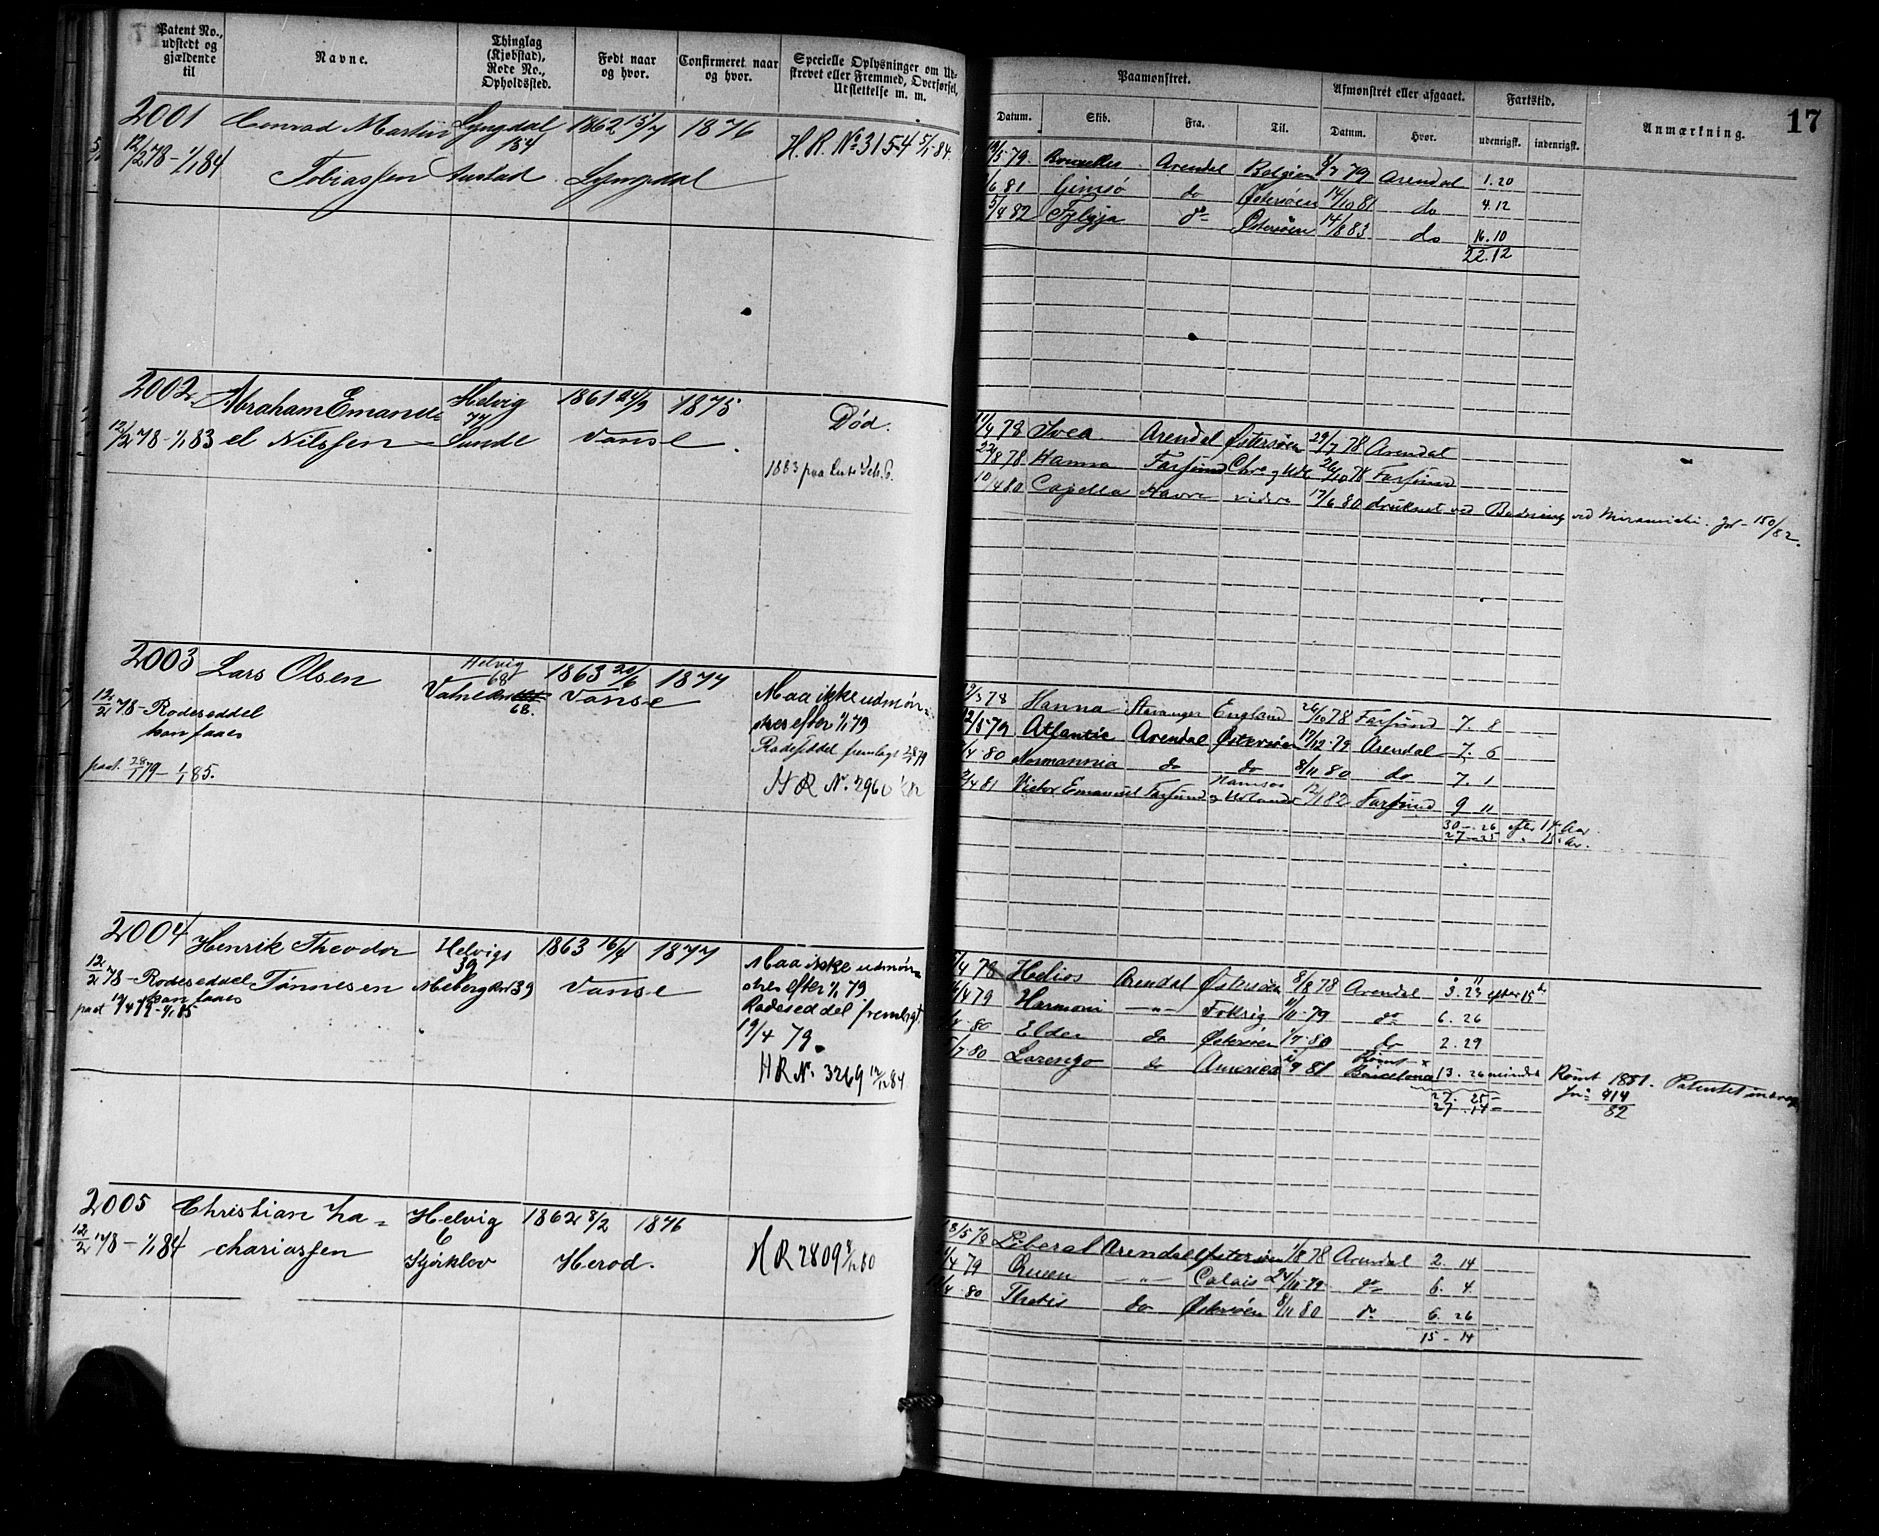 Patent No., udstedt og gjældende til
Navne.
Thinglag (Kjøbstad), Rode No., Opholdssted.
Født naar og hvor.
Confirmeret naar og hvor.
Specielle Oplysninger om Udskrevet eller Fremmed, Overførsel, Udslettelse m. m.
Paamønstret.
Afmønstret eller afgaaet.
Fartstid.
Anmærkning.
17
Datum. Skib. Fra. Til. Datum. Hvor. udenrigsk. indenrigsk.
2001 Conrad Martin Lyngdal 1862 15/7 1876 H.R. No 3154 5/1-84.
184
12/2 78 - 1/1 84 Tobiassen Austad Lyngdal
5 79. Arendal Belgien 8/7 79 Arendal 1.20
6 81 Gimsø do Østersøen 14/10 81 do 4.12
5/4 82 Fylgja do Østersøen 14/8 83 do 16.10
22.12
2002 Abraham Emanu- Helvig 1861 24/9 1875 Død.
77
12/2 78 - 1/1 83 el Nilssen Sunde Vanse
1883 paa
11/4 78 Svea Arendal Østersøen 29/7 78 Arendal
22/8 78 Hanna Farsund Chra og Udl 26/10 78 Farsund
10/4 80 Capella Havre videre 17/6 80 druknet ved Badning ved Miramichi. Jr - 150/82.
2003 Lars Olsen Helvig 1863 20/6 1877 Maa ikke udmøn-
68
Vatne Vanse
68.
stres efter 1/1 79
12/2 78 - Rodeseddel
kan faaes
Rodeseddel fremlagt 28/1 79
pat. 28/1 79 - 1/1 85.
H R No. 2960
3 78 Hanna Stavanger England 26/10 78 Farsund 7. 8
12/5 79 Atlantic Arendal Østersøen 17/12 79 Arendal 7. 6
4 80 Normannia do do 8/11 80 do 7. 1
Namsos
4 81 Victor Emanuel Farsund og Udlandet 12/1 82 Farsund 9 11
30 - 26 efter 14 Aar
27 - 25 " 15 Aar.
2004 Henrik Theodor Helvigs 1863 16/4 1877 Maa ikke udmøn-
39
12/2 78 - Rodeseddel Tønnesen 39 Vanse stres efter 1/1 79.
kan faaes
pat 19/4 79 - 1/1 85
Rodeseddel fremlagt
19/4 79.
H R No. 3269 12/12 84
4 78 Helios Arendal Østersøen 8/8 78 Arendal 3. 23 efter 15 Aar
4 79 Harmoni - " - 11 79 do 6. 26
4 80 Elden do Østersøen 1/7 80 do 2. 29
7 80 Lorenzo do America 9 81 Rømt Barcelona 13. 26 mindst Rømt 1881. Patentet
Jr: 914/82
27. 25 -
27. 14 -
2005 Christian Za- Helvig 1862 8/2 1876
6
12/2 78 - 1/1 84 chariassen Kjørklev Herod. H R 2809
18/5 78 Liberal Arendal Østersøen 1/8 78 Arendal 2. 14
4 79 - " - Calais 24/10 79 do 6. 4
4 80 Thetis do Østersøen 8/11 80 do 6. 26
15 - 14